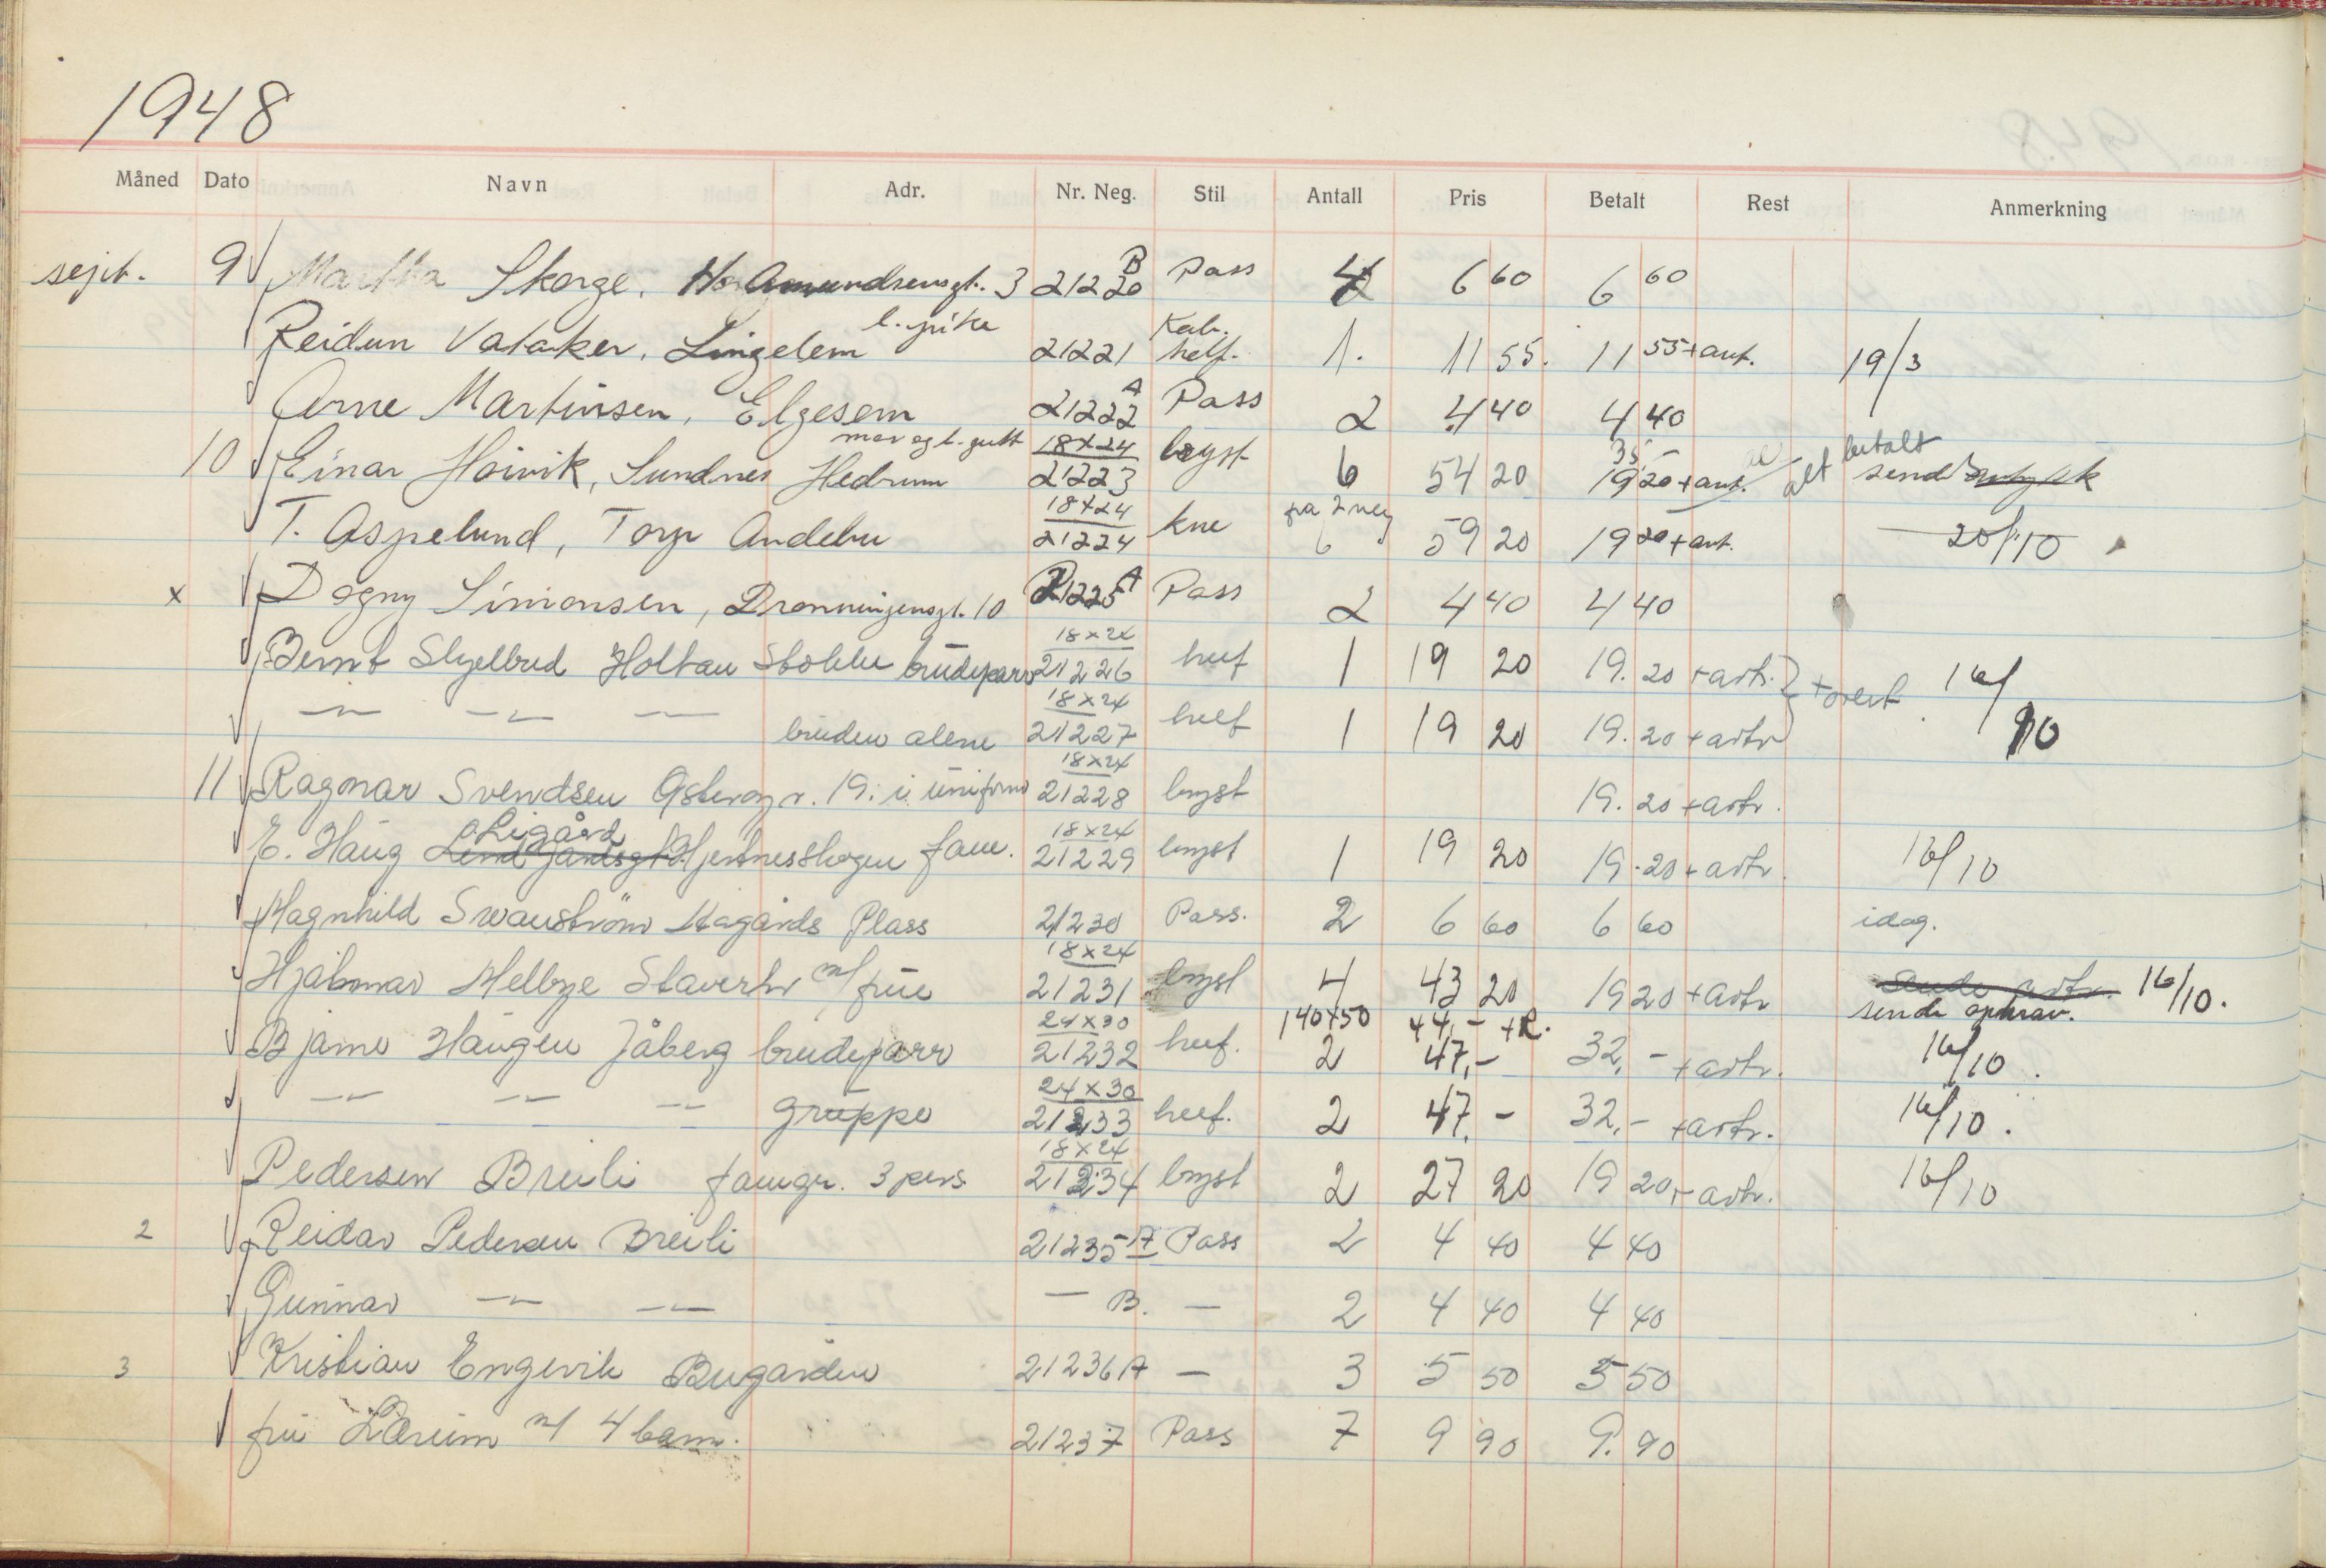 1948
Måned Dato Navn Adr. Nr. Neg. Stil Antall Pris Betalt Rest Anmerkning
sept. 9 Martha Skorge, Amundsensgt. 3 21220 B Pass 4 6 60 6 60
Reidun Vataker, Lingelem l. pike 21221 Kab. helf. 1. 11 55. 11 55 + ant. 19/3
Arne Martinsen, Elgesem 21222 A Pass 2 4 40 4 40
10 Einar Hoivik, Sundnes Hedrum mor og l. gutt 18x24 21223 byst 6 54 20 35 19 20 + ant. alt betalt send
T. Aspelund, Torp Andebu 18x24 21224 kne pa 2 neg 6 59 20 19 20 + ant. 20/10
x Dagny Simonsen, Dronningensgt. 10 21225 A Pass 2 4 40 4 40
Bernt Skjelbred Holtau Stokke brudeparr 18x24 21226 heef 1 19 20 19. 20 + artr. 16/10
brüden alene 18x24 21227 helf 1 19 20 19. 20 + artr
11 Ragnar Svendsen 19. i üniform 18x24 21228 byst 19. 20 + artr.
E. Haüg Ligård Hjertnesskogen fam. 18x24 21229 byst 1 19 20 19.20 + artr. 16/10
Magnhild Swanström Hagårds Plass 21230 Pass. 2 6 60 6 60 idag.
Hjalmar Melbye Stavern m/ früe 18x24 21231 byst 4 43 20 19 20 + artr sende artr. 16/10.
sende opkrav.
Bjarne Haügen Jåberg brudeparr 24x30 21232 heef. 1 40x50 2 44,- + R. 47,- 32,- + artr. 16/10.
grüppe 24x30 21233 heef. 2 47,- 32,- + artr. 16/10.
Pedersen Breili famgr. 3 pers 18x24 21234 byst 2 27 20 19 20 + artr. 16/10
2 Reidar Pedersen Breili 21235 A Pass 2 4 40 4 40
Günnar — — — B. — 2 4 40 4 40
3 Kristian Engevik Bugården 21236 A — 3 5 50 5 50
früe Lærüm m/ 4 barn. 21237 Pass 7 9 90 9. 90